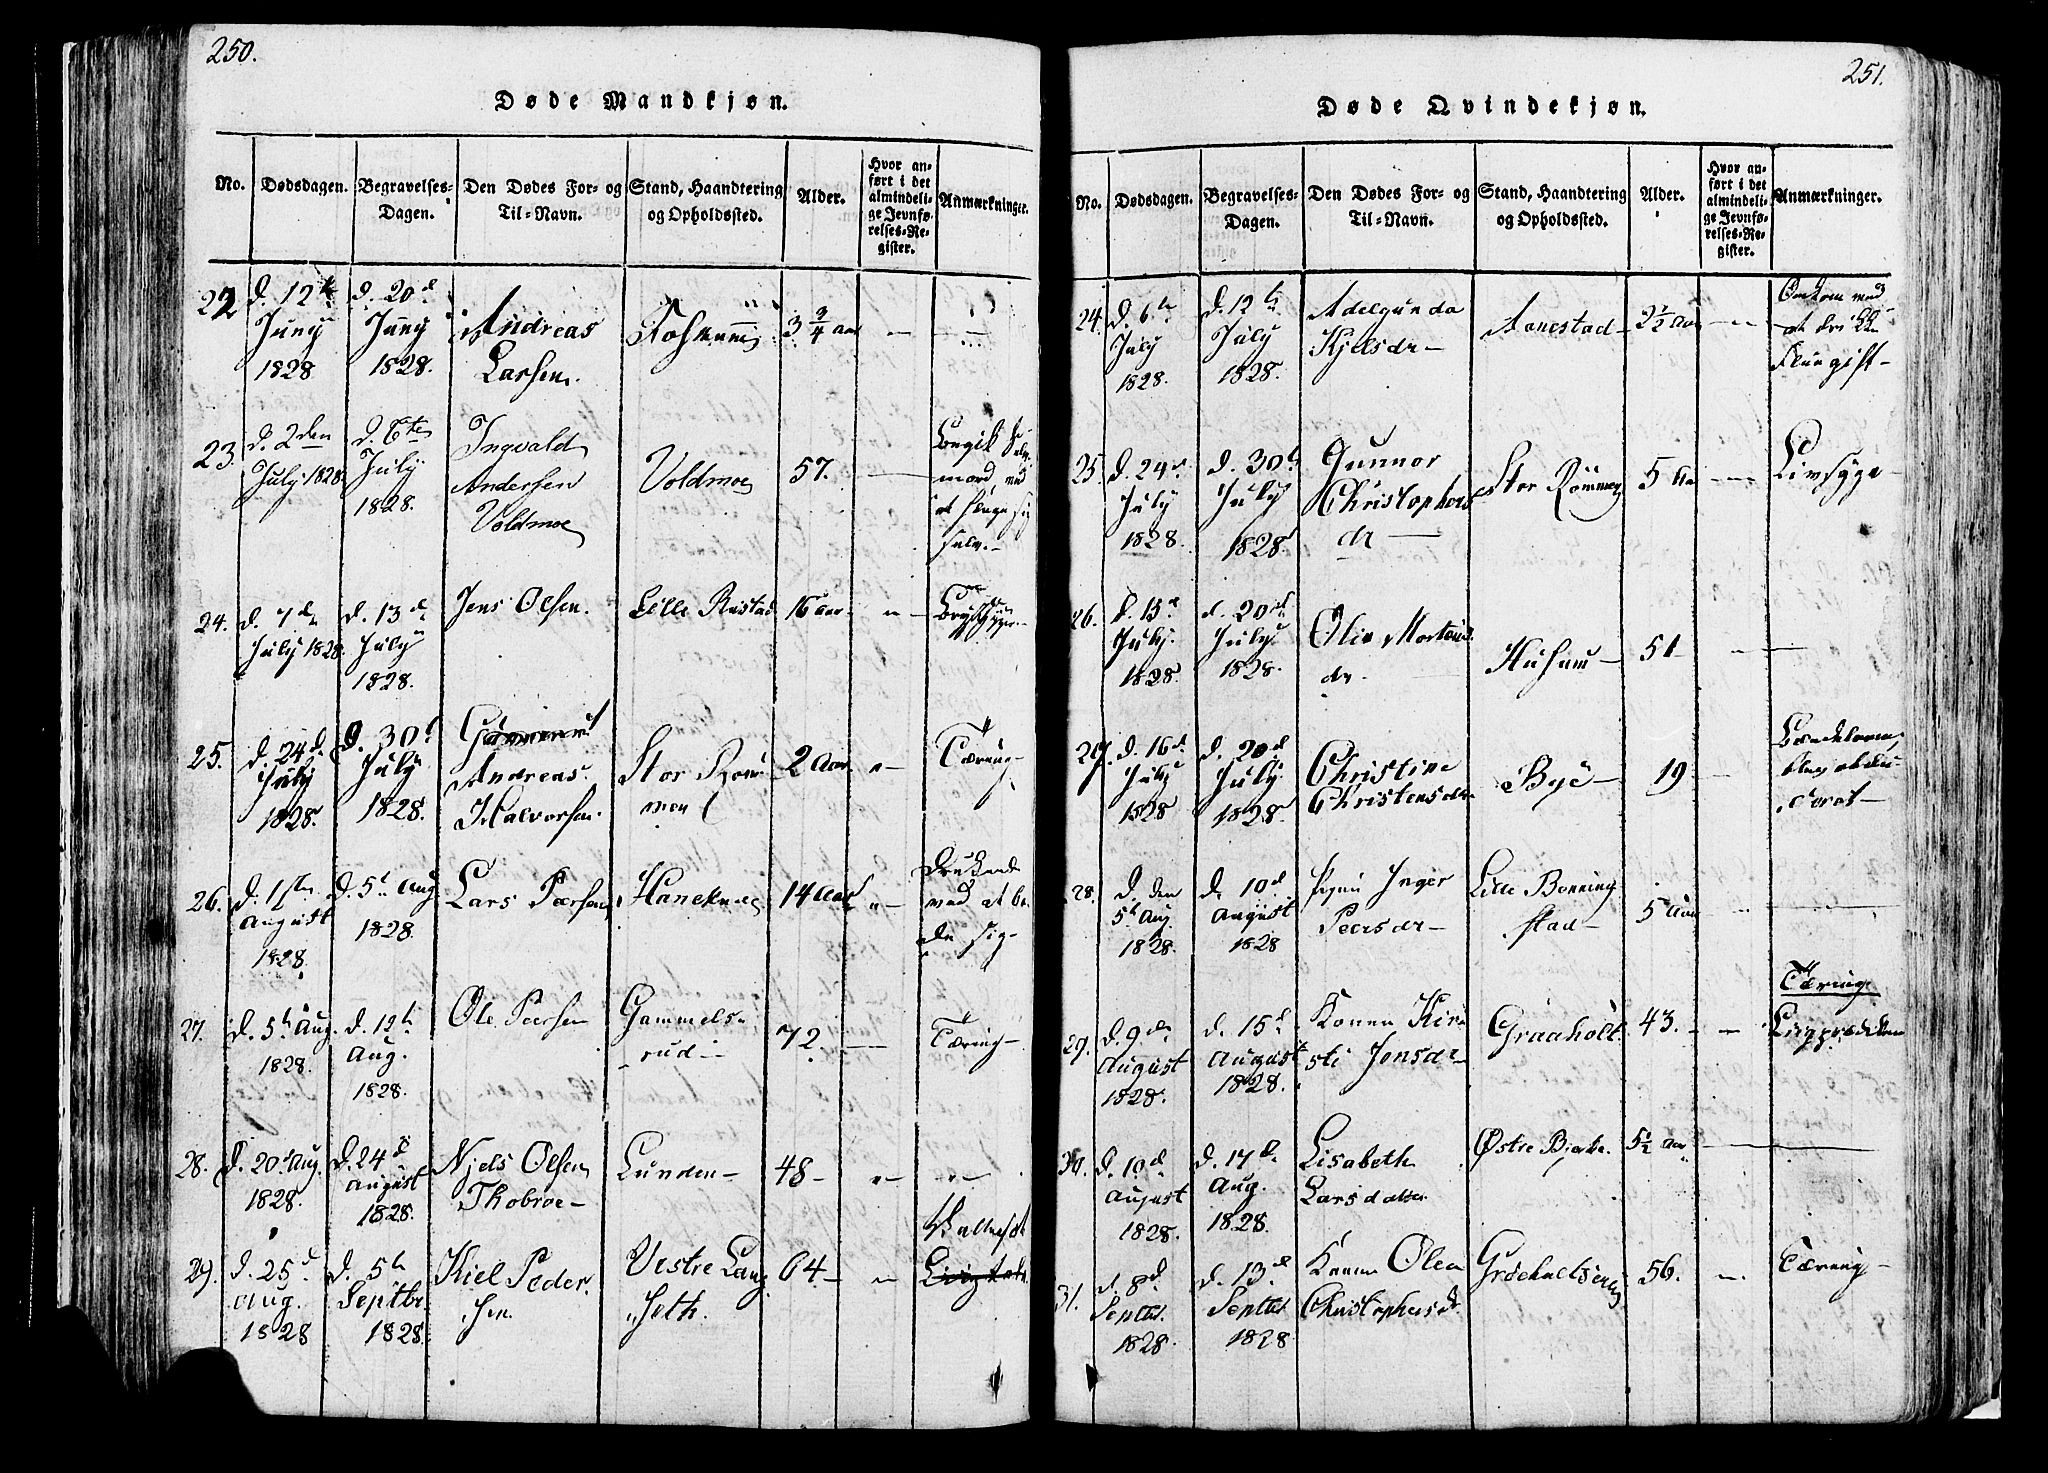 250.
Døde Mandkjøn.
No.
Dødsdagen.
Begravelses-
Dagen.
Den Dødes For- og
Til-Navn.
Stand, Haandtering
og Opholdssted.
Alder.
Hvor an-
ført i det
almindeli-
ge Jevnfø-
relses-Re-
gister.
Anmærkninger.
22
d. 12te
Juny
1828
d. 20d
Juny
1828.
Andreas
Larsen.
3 3/4 aar
23.
d. 2den
July 1828.
d. 6te
July
1828.
Ingvald
Andersen
Voldmoe
Voldmoe
57.
Begik Selv-
mord, med
at
selv.
24.
d. 7d
July 1828.
d. 13d
July
1828.
Jens Olsen.
Lille Rustad
16 aar
Brystsyge
25.
d. 24d
July
1828.
d. 30d
July
1828.
Andreas
Halvorsen.
Stor Røm-
men
2 Aar
Tæring
26.
d. 1sten
August
1828.
d. 5t Aug
1828.
Lars Pærsen
Hanekne
14 Aar
Druknede
ved at ba-
de sig
27.
d. 5t Aug.
1828.
d. 12t
Aug.
1828.
Ole Pærsen
Gammels-
rud
72.
Tæring
28.
d. 20d Aug.
1828.
d. 24d
August
1828.
Njels Olsen
Thobroe
Lunden
48
29.
d. 25d
Aug.
1828
d. 5te
Septbr
1828.
Kiel Peder
sen.
Vestre Lang
seth.
64
251.
Døde Qvindekjøn.
No.
Dødsdagen.
Begravelses-
Dagen.
Den Dødes For- og
Til-Navn.
Stand, Haandtering
og Opholdssted.
Alder.
Hvor an-
ført i det
almindeli-
ge Jevnfø-
relses-Re-
gister.
Anmærkninger.
24.
d. 6te
July
1828.
d. 12te
July
1828.
Adelgunda
Kjelsdr
Aanestad
2 1/2 Aar
Omkom med
at drikke
Fluegift
25.
d. 24d
July
1828.
d. 30t
July
1828.
Gunnor
Christophers
dr
Stor Römmen
5 Aa
Livsyge
26.
d. 15d
July.
1828.
d. 20d
July
1828.
Olia Mortens
dr.
Husum
51
27.
d. 16d
July
1828
d. 20d
July
1828.
Christine
Christensdr
Bye
19
28.
d. den
5t Aug
1828.
d. 10d
August
1828
Inger
Peersdr
Lille Bonning
stad
5 Aar
29.
d. 9de
August
1828.
d. 15d
August
1828.
Konen Kir
sti Jonsdr
Graaholt
43.
Tæring
30.
d. 10d
August
1828.
d. 17d
Aug.
1828.
Lisabeth
Larsdatter
Østre Bjerke.
5 1/2 Aar
31.
d. 8d
Septbr.
1828.
d. 13d
Septbr
1828
Konen Olea
Christophersdr.
56.
Tæring